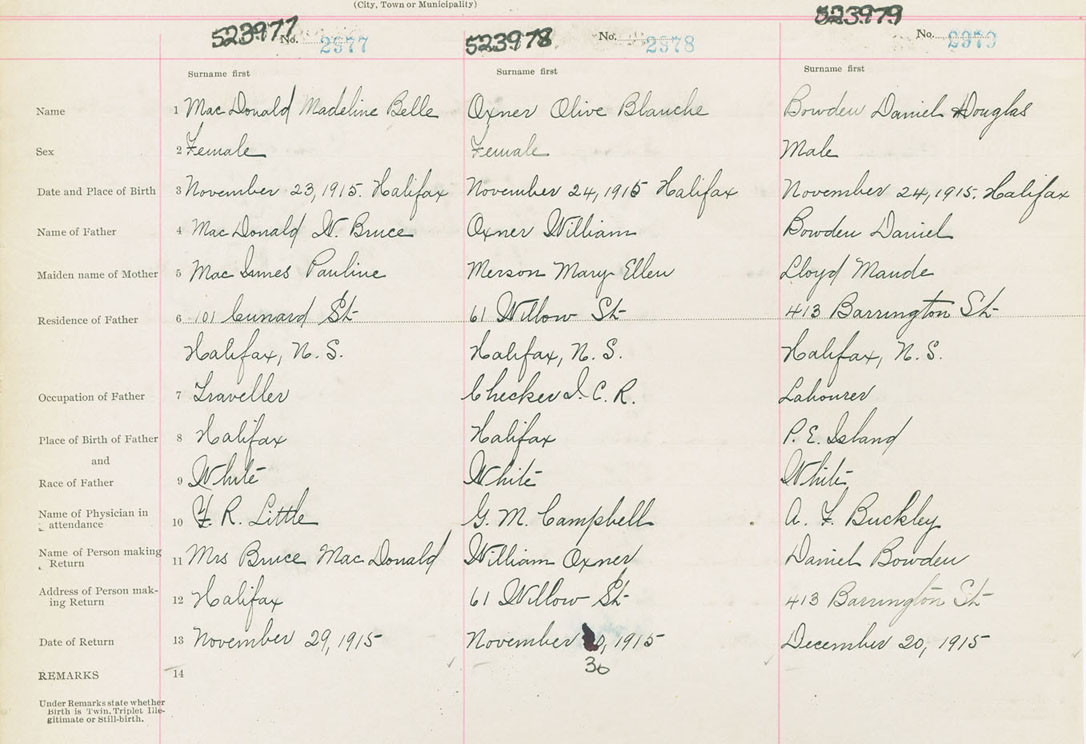 (City, Town or Municipality)
523977 No. 2977 523978 No. 2978 523979 No. 2979
Surname first Surname first Surname first
Name 1 Mac Donald Madeline Belle Oxner Olive Blanche Bowden Daniel Douglas
Sex 2 Female Female Male
Date and Place of Birth 3 November 23, 1915. Halifax November 24, 1915 Halifax November 24, 1915. Halifax
Name of Father 4 Mac Donald W. Bruce Oxner William Bowden Daniel
Maiden name of Mother 5 Mac Innes Pauline Merson Mary Ellen Lloyd Maude
Residence of Father 6 101 Cunard St 61 Willow St 413 Barrington St
Halifax, N. S. Halifax, N. S. Halifax, N. S.
Occupation of Father 7 Traveller Checker I. C. R. Labourer
Place of Birth of Father 8 Halifax Halifax P. E. Island
and
Race of Father 9 White White White
Name of Physician in attendance 10 F. R. Little G. M. Campbell A. F. Buckley
Name of Person making Return 11 Mrs Bruce Mac Donald William Oxner Daniel Bowden
Address of Person mak-ing Return 12 Halifax 61 Willow St 413 Barrington St
Date of Return 13 November 29, 1915 November 0, 1915 December 20, 1915
30
REMARKS 14
Under Remarks state whether
Birth is Twin, Triplet Ille-
gitimate or Still-birth.